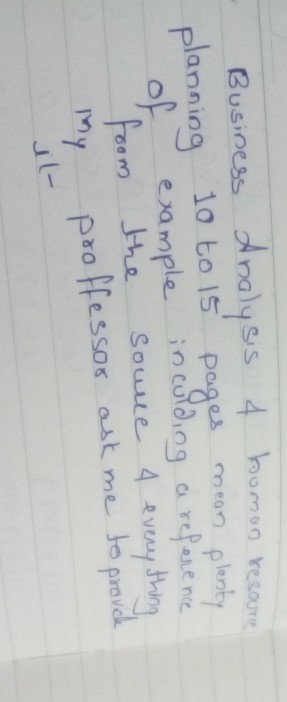 Business Analysis & human resource
planning 10 to 15 pages mean plenty
of example inculding a reference
from the source & everything
my proffessor ask me to provide
it-